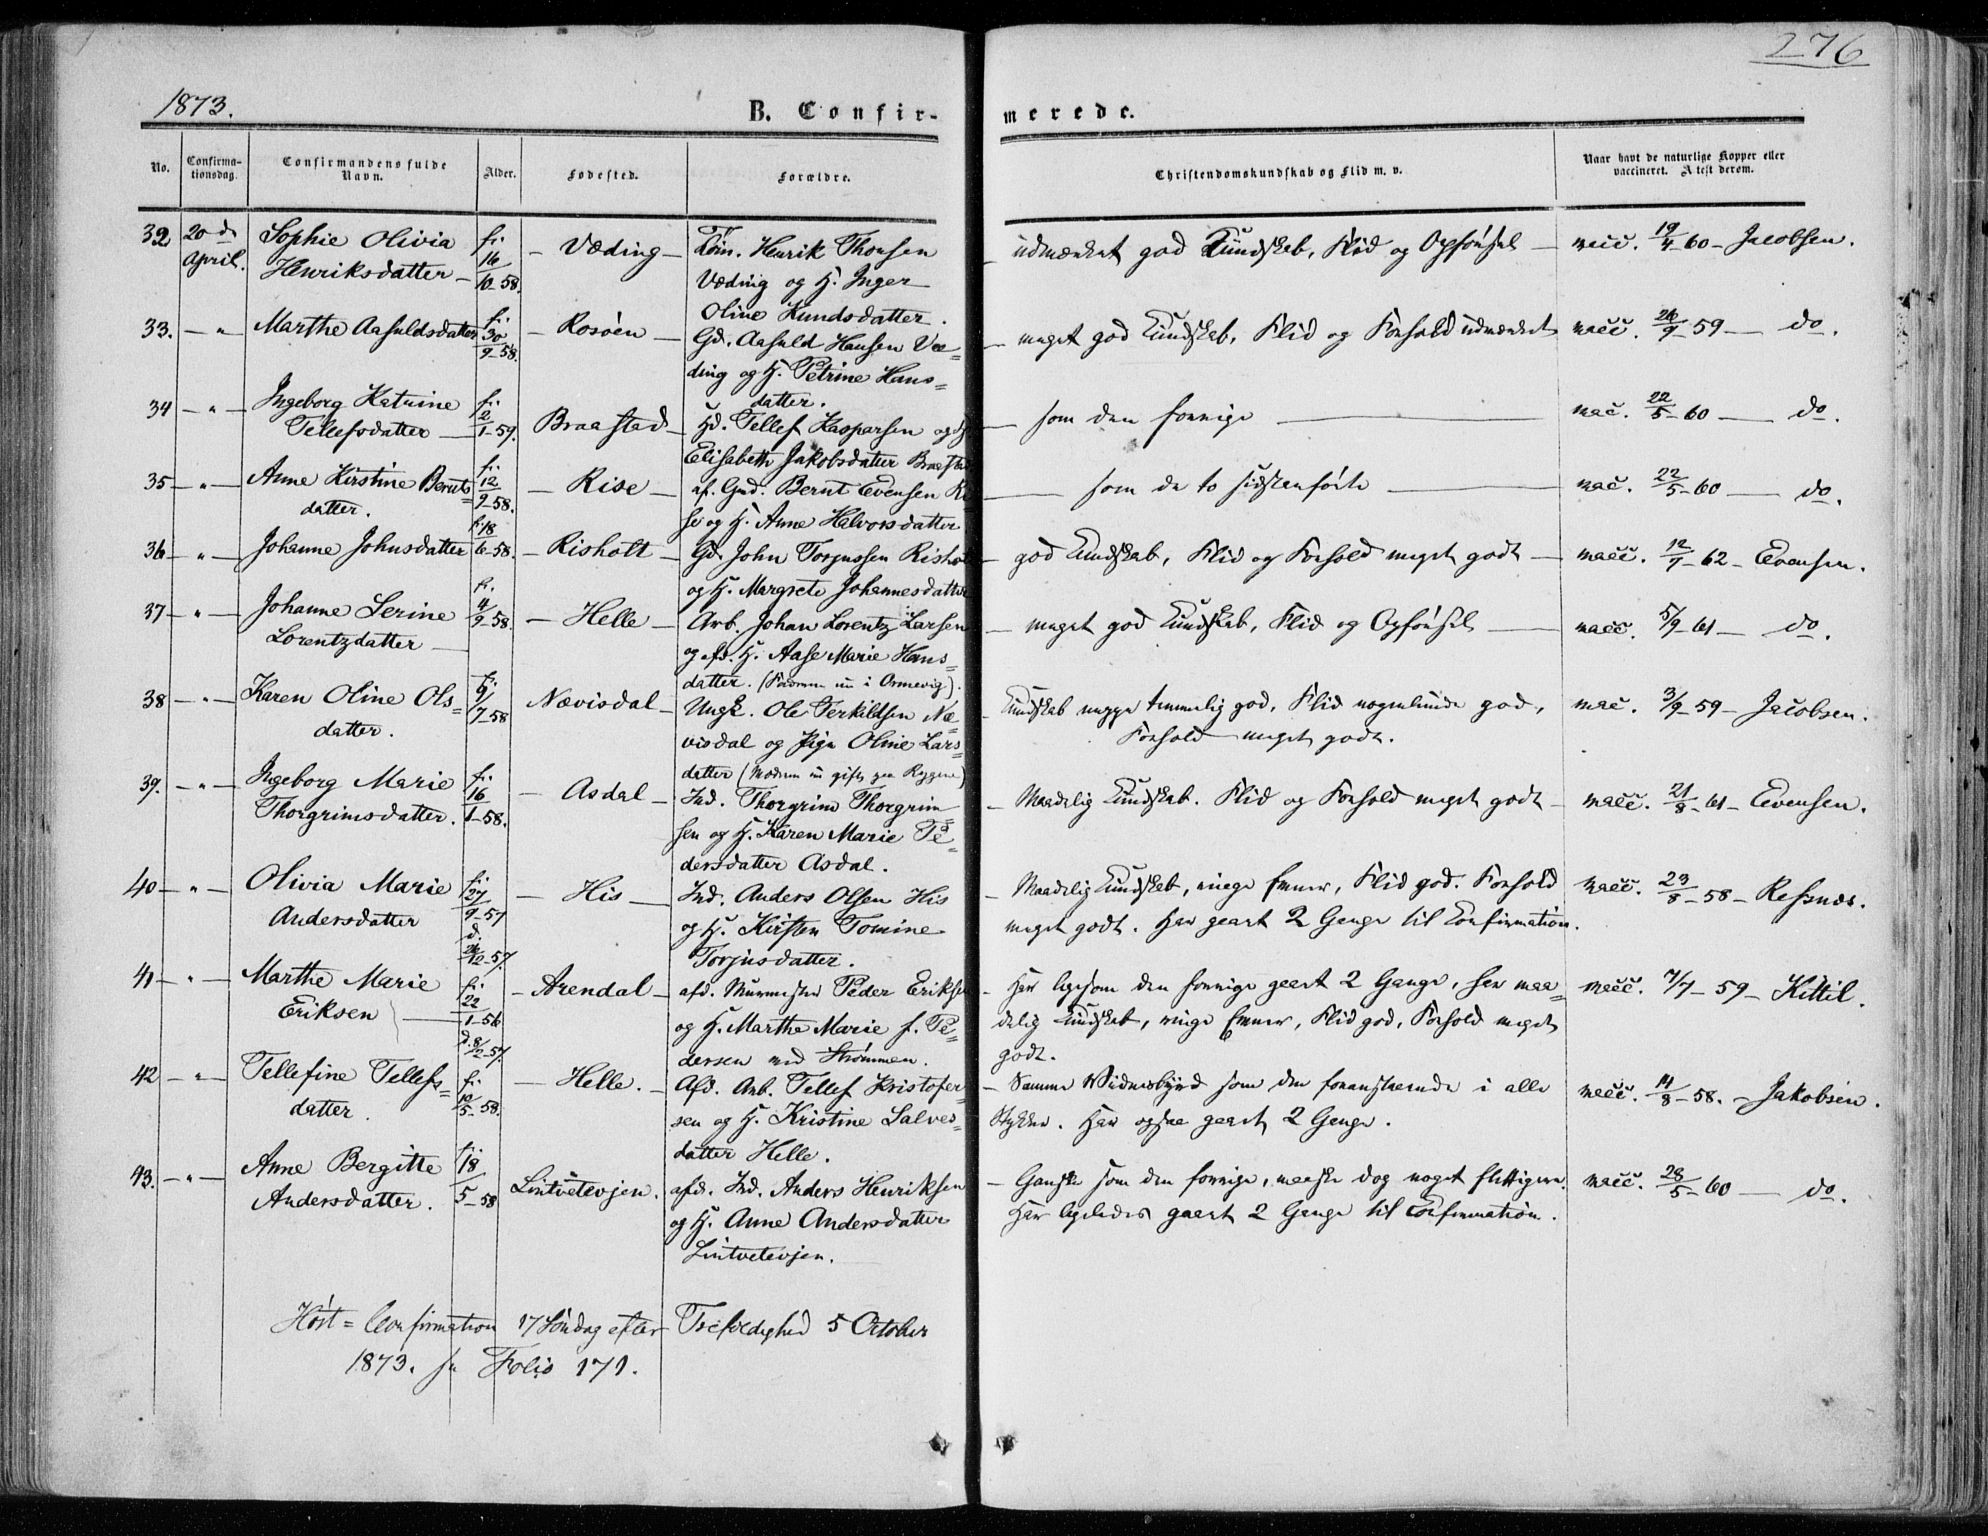 276
1873.
B. Confirmerede.
No.
Confirmationsdag.
Confirmandens fulde Navn.
Alder.
Fødested.
Forældre.
Christendomskundskab og Flid m. v.
Naar havt de naturlige Kopper eller vaccineret. Attest derom.
32 20de April. Sophie Olivia Henriksdatter – f. 16/10-58. – Væding – Henrik Thorsen Væding og H. Inger Oline Knudsdatter. udmærket god Kundskab, Flid og Opførsel – vacc. 19/4-60 – Jacobsen.
33. – " – Marthe Aasuldsdatter f. 30/9-58. – Rosøen – Gd. Aasuld Hansen Væding og H. Petrine Hansdatter. – meget god Kundskab, Flid og Forhold udmærket vacc. 26/9 59 – do.
34 – " – Ingeborg Katrine Tellefsdatter – f. 2/1-59. Braastad – Gd. Tellef Kasparsen og H. Elisabeth Jakobsdatter Braastad – som den forrige – vac. 22/5-60 – do.
35 – " – Anne Kirstine Berntsdatter. f. 12/9-58. – Rise – af. Gmd. Bernt Evensen Rise og H. Anne Halvorsdatter – som de to sidstanførte – vac. 22/5-60 – do.
36 – " – Johanne Johnsdatter f. 18/6-58. – Risholt – Gd. John Torjussen Risholt og H. Margrete Johannesdatter – god Kundskab, Flid og Forhold meget godt – vacc. 12/7-62 – Evensen.
37 – " – Johanne Serine Lorentzdatter – f. 4/9-58. – Helle – Arb. Johan Lorentz Larsen og afd. H. Aase Marie Hansdatter. (Faderen nu i Ormevig). – meget god Kundskab, Flid og Opførsel – vacc. 5/9-61 – do.
38 – " – Karen Oline Olsdatter. f. 9/7-58 Nævisdal – Ungk. Ole Terkildsen Nævisdal og Pige Oline Larsdatter (Moderen nu gift paa Ryggene) – Kundskab neppe temmelig god, Flid nogenlunde god, Forhold meget godt. vac. 3/9-59 – Jacobsen.
39. – " – Ingeborg Marie Thorgrimsdatter. f. 16/1-58. – Asdal – Ind. Thorgrim Thorgrimsen og H. Karen Marie Pedersdatter Asdal. – Maadelig Kundskab. Flid og Forhold meget godt – vacc. 21/8-61 – Evensen.
40 – " – Olivia Marie Andersdatter f. 27/9-57 d. 26/12-57. – His – Ind. Anders Olsen His og H. Kirsten Tomine Torjusdatter. – Maadelig Kundskab, ringe Evner, Flid god. Forhold meget godt. Har gaaet 2 Gange til Confirmation. vacc. 23/8-58 – Refsnes.
41 – " – Marthe Marie Eriksen – f. 22/1-56 d. 8/2-57. – Arendal – afd. Murmester Peder Eriksen og H. Marthe Marie f. Pedersen ved Strømmen. – Har ligesom den forrige gaaet 2 Gange, har maadelig Kundskab, ringe Evner, Flid god, Forhold meget godt. vacc. 7/7-59 – Kittil.
42 – " – Tellefine Tellefsdatter. f. 10/5-58. – Helle. – Afd. Arb. Tellef Kristofersen og H. Kristine Salvesdatter Helle. – Samme Vidnesbyrd som den foranstaaende i alle Stykker. Har ogsaa gaaet 2 Gange. vacc. 14/8-58. – Jakobsen.
43. – " – Anne Bergitte Andersdatter. f. 18/5-58 Lintvetevjen. afd. Ind. Anders Henriksen og H. Anne Andersdatter Lintvetevjen. – Ganske som den forrige, maaske dog noget flittigere. Har ligeledes gaaet 2 Gange til Confirmation. vacc. 28/5-60 – do.
Høst=Confirmation 17 Søndag efter Trefoldighed 5 October
1873. se Folio 171.